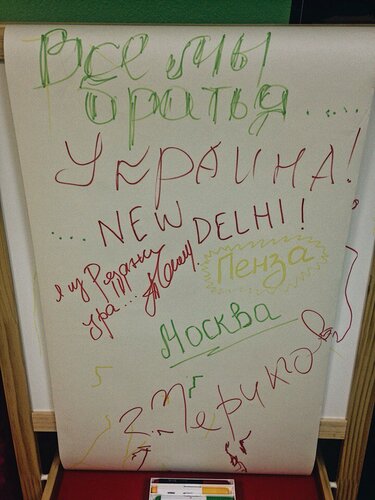 Все мы
братья.....
УКРАИНА!
....NEW DELHI!
я из Рязани
ура...
Пенза
Москва
г.Серпухов